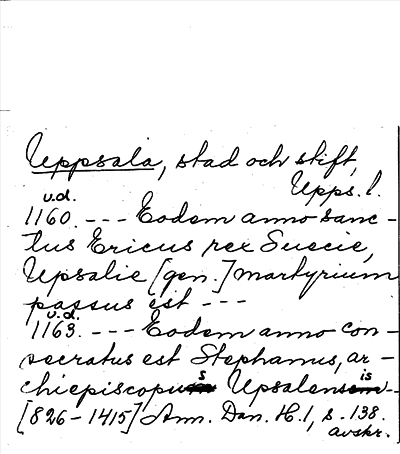 Uppsala, stad och stift,
Upps. l.
u.d.
1160. --- Eodem anno sanc-
tus Ericus rex Suecie,
Upsalie [gen.] martyrium
passus est ---
u.d.
1163. --- Eodem anno con-
secratus est Stephanus, ar-
chiepiscopus Upsalensis --
[826-1415] Ann. Dan. H. 1, s. 138.
avskr.